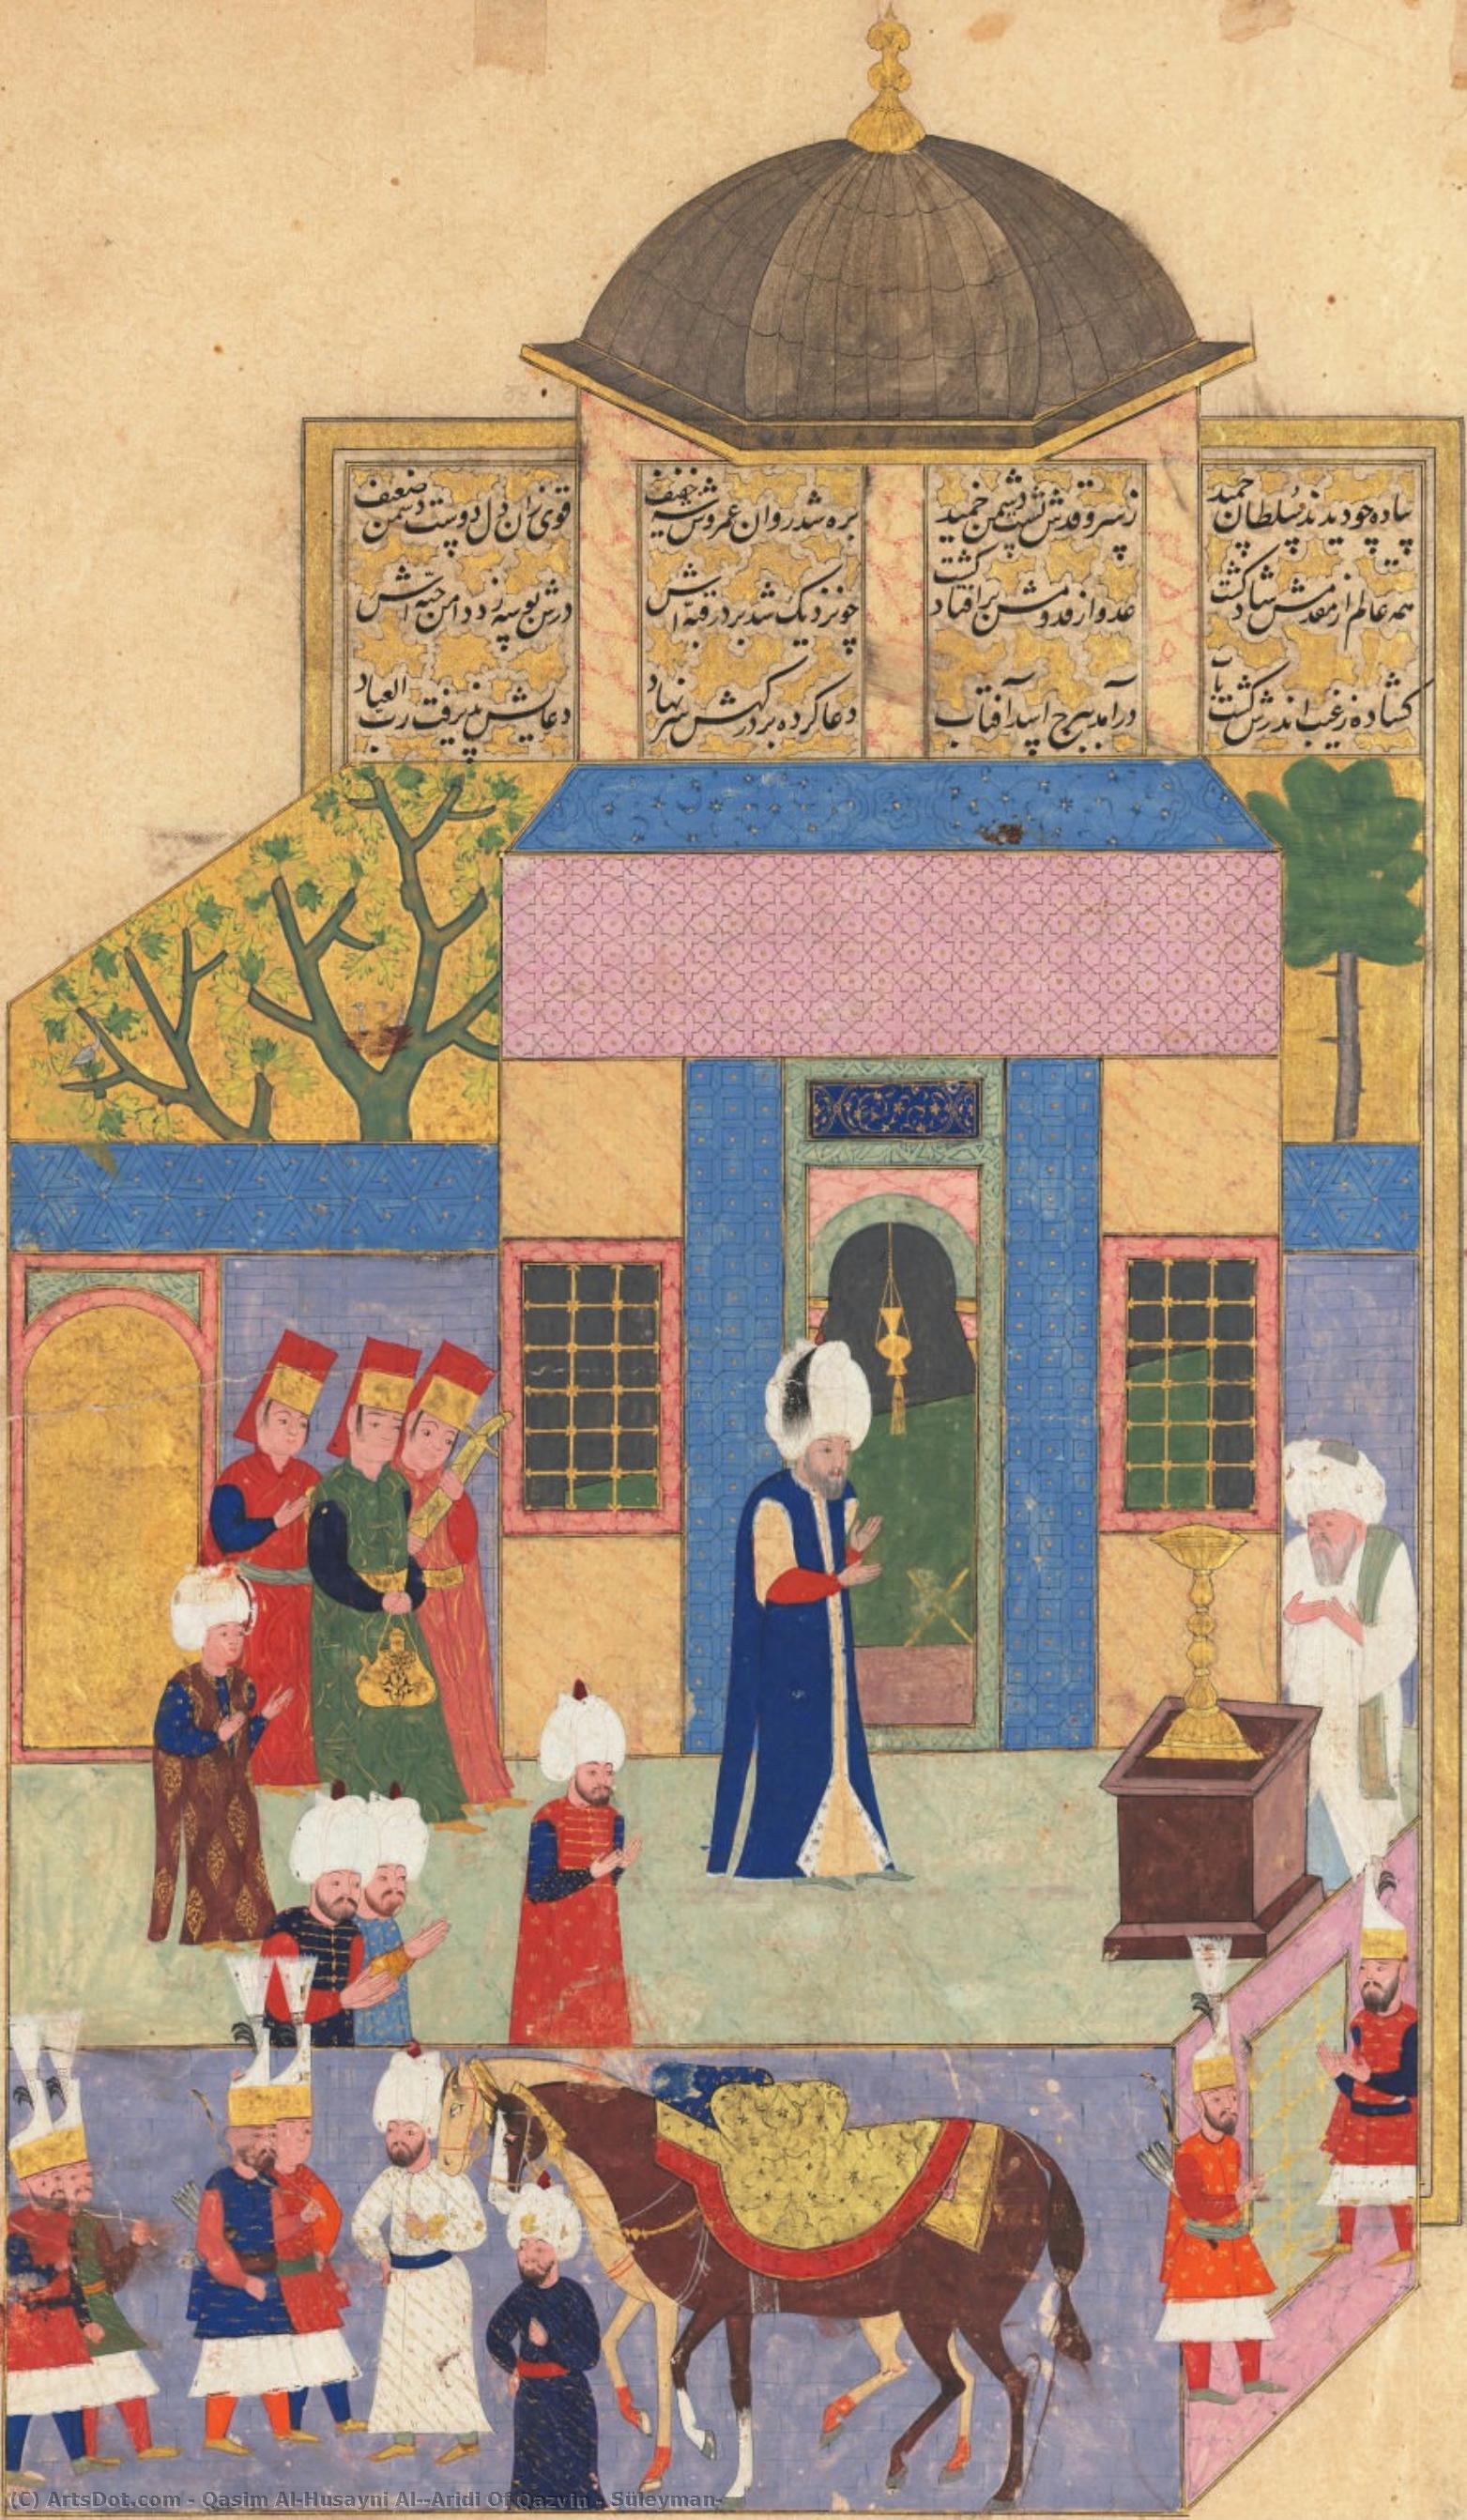 پیاده چو دیدند سلطان حمید
ز سرو قدش پشت دشمن خمید
بره شد روان
قوی زان دل دوست دشمن ضعیف
همه عالم از مقدمش شاد گشت
عدو از قدومش برافتاد گشت
چو نزدیک شد بر در قبّه اش
درش بوسه زد دامن جبّه اش
گشاده ز غیب اندرش گشت باب
درآمد ببرج اسد آفتاب
دعا کرده بر درگهش سر نهاد
دعایش پذیرفت رب العباد
(C) ArtsDot.com - Qasim Al-Husayni Al--Aridi Of Qazvin - Süleyman-